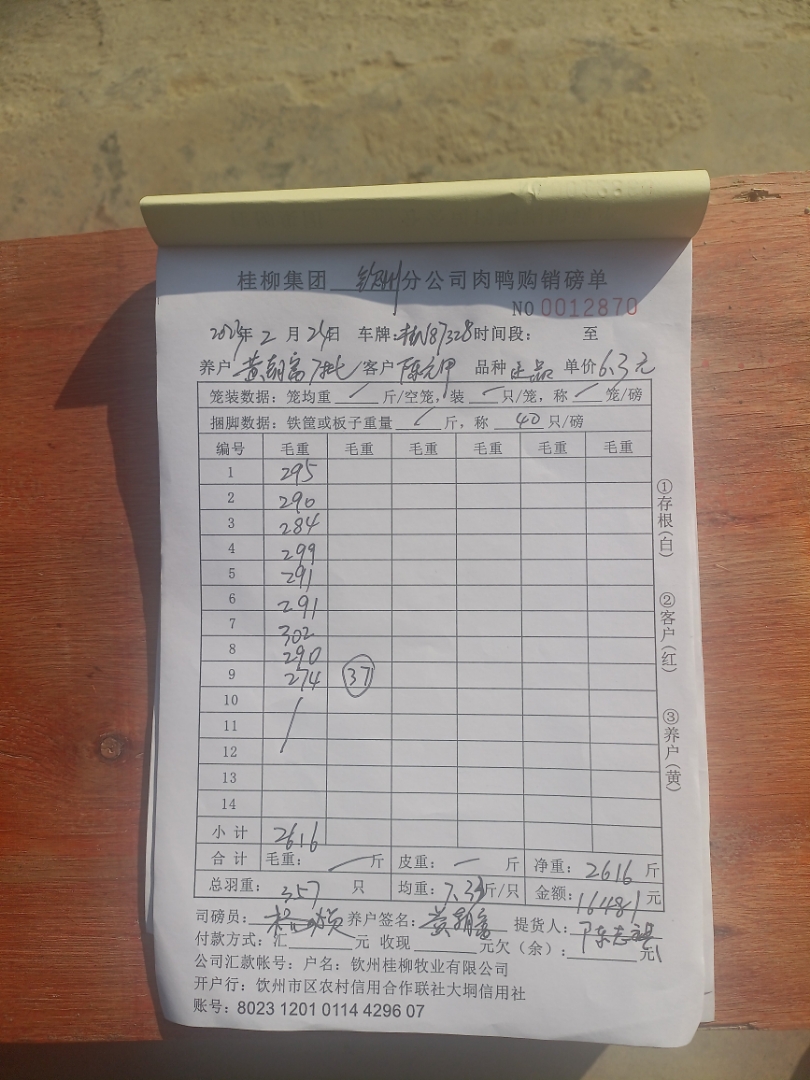 桂柳集团 钦州 分公司肉鸭购销磅单
NO 0012870
2025年 2 月 24日 车牌:桂N87328 时间段: 至
养户 黄朝富 7批 客户 陈元甲 品种 正品 单价 6.3元
笼装数据: 笼均重 斤/空笼, 装 只/笼, 称 笼/磅
捆脚数据: 铁筐或板子重量 斤, 称 40 只/磅
编号 毛重 毛重 毛重 毛重 毛重 毛重
1 295
2 290
3 284
4 299
5 291
6 291
7 302
8 290
9 274 37
10
11
12
13
14
小计 2616
合计 毛重: 斤 皮重: 斤 净重: 2616 斤
总羽重: 357 只 均重: 7.33斤/只 金额: 16481元
司磅员: 养户签名: 黄朝富 提货人: 陈志
付款方式: 汇 元 收现 元欠(余): 元
公司汇款帐号: 户名: 钦州桂柳牧业有限公司
开户行: 钦州市区农村信用合作联社大垌信用社
账号: 8023 1201 0114 4296 07
①存根(白)
②客户(红)
③养户(黄)